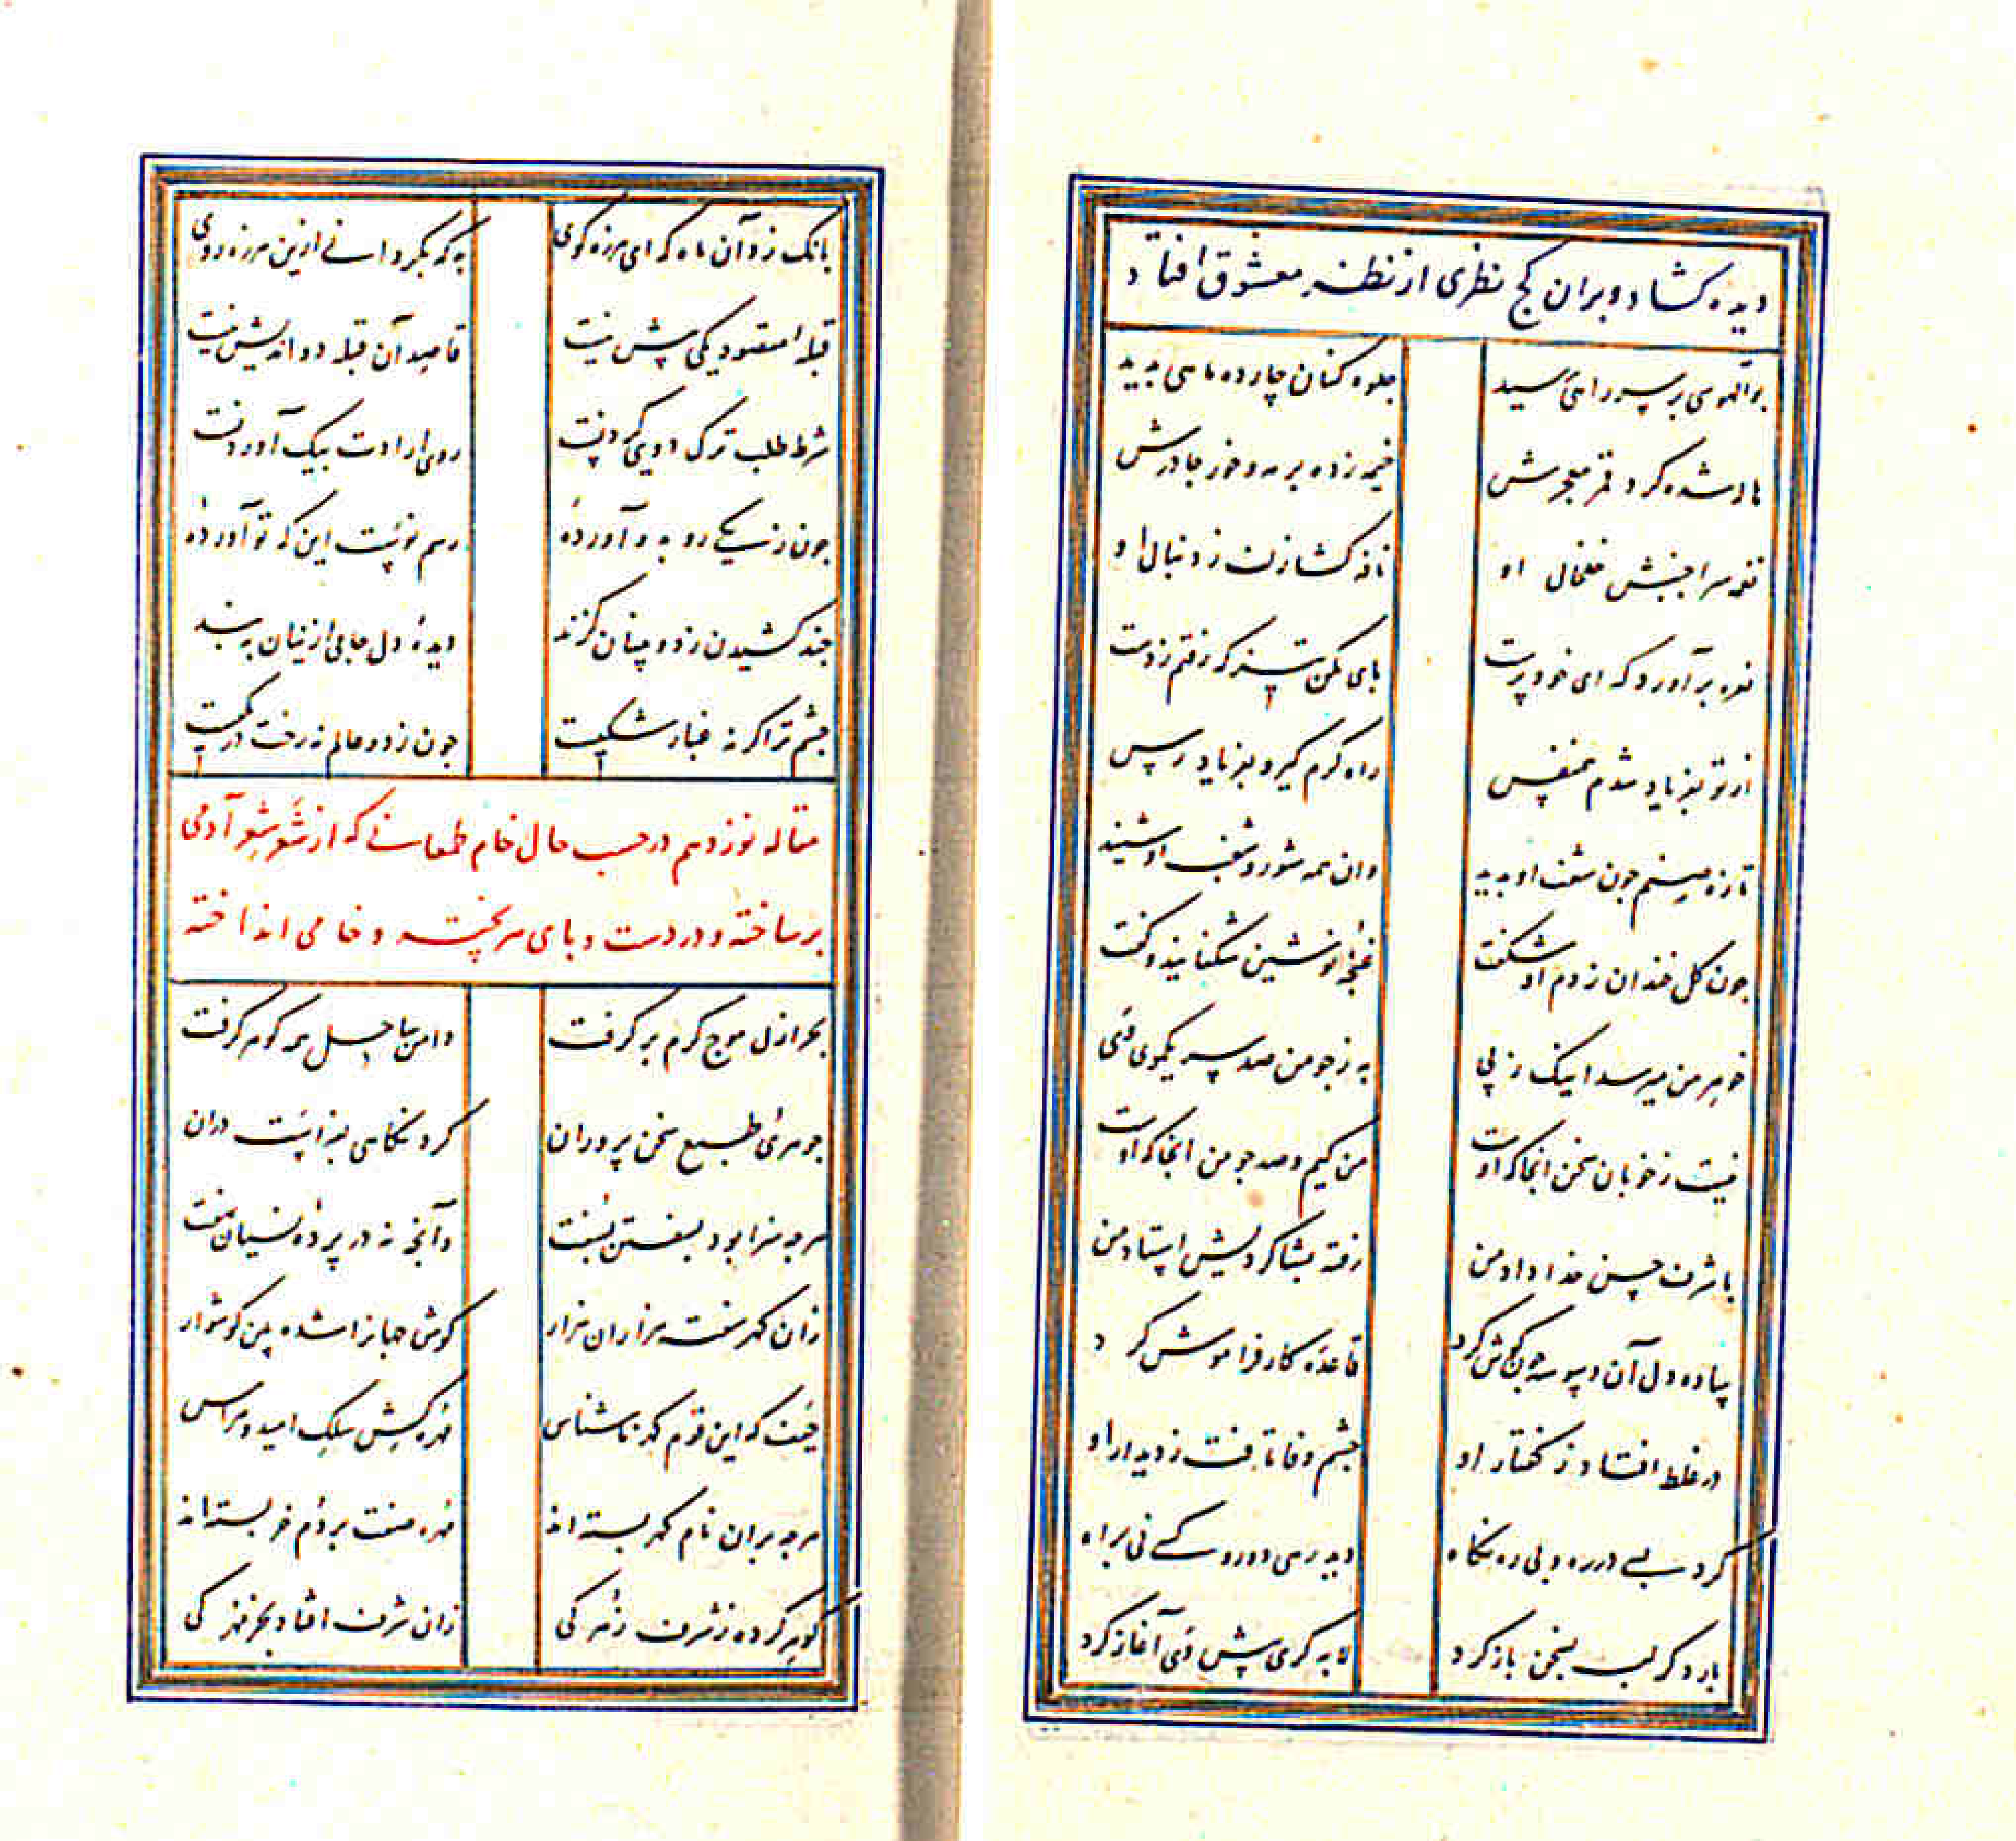 دیده کشاد و بران کج نظری از نظر معشوق افتاد
بوالهوسی بر سر راهی رسید جلوه کنان چارده ماهی بدید
ماه شده گرد قمر معجرش خیمه زده بر مه و خور چادرش
نغمه سرا جنبش خلخال او نافه کشا زلف ز دنبال او
نعره برآورد که ای خودپرست بای مکن تیز که رفتم ز دست
از تو بفریاد شدم همنفس راه کرم گیر و بفریاد رس
تازه صنم جون شغف او بدید وان همه شور و شغب او شنید
جون کل خندان ز دم او شکفت غنجه نوشین شکفانید و گفت
خواهر من میرسد اینک ز پی به ز جو من صد بسر یکموی وی
نیست ز خوبان سخن انجا که اوست من کیم و صد جو من انجا که اوست
با شرف حسن خداداد من رفته بشاکردیش استاد من
ساده دل آن وسوسه جون گوش کرد قاعده کار فراموش کرد
در غلط افتاد ز گفتار او جشم وفا تافت ز دیدار او
کرد بسی در ره و بی ره نگاه دید رهی دور و کسی نی براه
بار دگر لب بسخن باز کرد لابه گری پیش وی آغاز کرد
بانک زد آن ماه که ای هرزه گوی به که بگردانی ازین هرزه روی
قبله مقصود یکی بیش نیست قاصد آن قبله دو اندیش نیست
شرط طلب ترک دویی کردنست روی ارادت بیک آوردنست
جون ز یکی رو بدو آورده رسم نوئیست این که تو آورده
جند کشیدن ز دو بینان گزند دیده دل جامی ازینان ببند
جشم ترا گر نه غبار شکیست جون ز دو عالم نه رخت در یکیست
مقاله نوزدهم در حسب حال خام طمعانی که از شعر شعر آدمی
بر ساخته و در دست و بای هر پخته و خامی انداخته
بحر ازل موج کرم بر گرفت دامن ساحل همه گوهر گرفت
جوهری طبع سخن پروران کرد نگاهی بفراست دران
هرجه سزا بود بسفتن بسفت وآنجه نه در پرده نسیان نهفت
زان گهر سفته هزاران هزار گوش جهانرا شده بین گوشوار
حیف که این قوم گهر ناشناس مهره کش سلک امید و هراس
هرجه بران نام گهر بسته اند مهره صفت بر دم خر بسته اند
گوهر گرده ز شرف زهرگی زان شرف افتاد بخر مهرگی